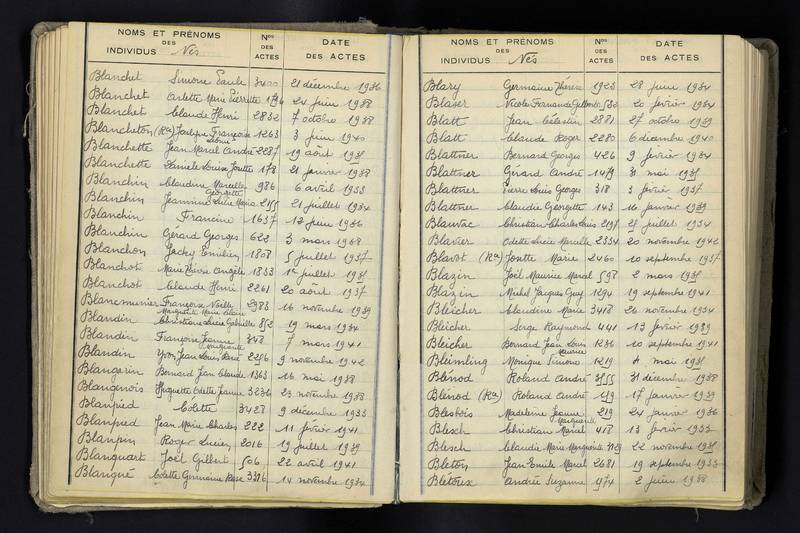 NOMS ET PRÉNOMS DES INDIVIDUS Nés Nos DES ACTES DATE DES ACTES
Blanchet Simone Paule 3400 21 décembre 1936
Blanchet Arlette Marie Pierrette 1796 24 juin 1938
Blanchet Claude Henri 2832 7 octobre 1938
Blancheton (Ra) Jacques Françoise 1263 3 juin 1940
Blanchette Jean Marcel André 2287 19 août 1935
Blanchette Daniele Louise Josette 178 21 janvier 1938
Blanchin Claudine Marcelle Georgette 986 6 avril 1933
Blanchin Jeannine Lucie Maria 2155 21 juillet 1934
Blanchin Francine 1637 12 juin 1936
Blanchin Gérard Georges 622 3 mars 1938
Blanchon Jacky Emilien 1808 5 juillet 1937
Blanchot Marie Pierre Angèle 1833 1er juillet 1935
Blanchot Claude Henri 2261 20 août 1937
Blancmunier Françoise Noëlle Marguerite Marie 2983 16 novembre 1939
Blandin Christiane Lucie Gabrielle 852 19 mars 1934
Blandin Françoise Jeanne Marguerite 348 7 mars 1941
Blandin Yvon Jean Louis 2296 9 novembre 1942
Blangarin Bernard Jean Claude 1363 16 mai 1938
Blangenois Huguette Odette Jeanne 3236 23 novembre 1938
Blanpied Colette 3428 9 décembre 1933
Blanpied Jean Marie Charles 222 11 février 1941
Blanpin Roger Lucien 2016 19 juillet 1939
Blanquart Joël Gilbert 506 22 avril 1941
Blanqué Colette Germaine Rose 3376 14 novembre 1934
NOMS ET PRÉNOMS DES INDIVIDUS Nés Nos DES ACTES DATE DES ACTES
Blary Germaine Thérèse 1923 28 juin 1934
Blaser Nicole Fernande 532 20 février 1934
Blatt Jean Célestin 2881 27 octobre 1939
Blatt Claude Roger 2280 6 décembre 1940
Blattner Bernard Georges 426 9 février 1934
Blattner Gérard André 1479 31 mai 1935
Blattner Pierre Louis Georges 318 3 février 1937
Blattner Claudie Georgette 143 16 janvier 1939
Blauvac Christian Charles Louis 2198 25 juillet 1934
Blavier Odette Lucie Marcelle 2354 20 novembre 1942
Blavot (Ra) Josette Marie 2460 10 septembre 1937
Blazin Joël Maurice Marcel 598 2 mars 1935
Blazin Michel Jacques Guy 1294 19 septembre 1941
Bleicher Claudine Marie 3418 26 novembre 1934
Bleicher Serge Raymond 441 13 février 1939
Bleicher Bernard Jean Louis Maurice 1236 10 septembre 1941
Bleimling Monique Simone 1219 4 mai 1935
Blénod Roland André 3555 31 décembre 1938
Blénod (Ra) Roland André 159 17 janvier 1939
Blesbois Madeleine Jeanne Marguerite 219 24 janvier 1936
Blesch Christian Marcel 418 13 février 1933
Blesch Claudie Marie Marguerite 3129 22 novembre 1935
Bleton Jean Emile Marcel 2681 19 septembre 1933
Bletoux Andrée Suzanne 1574 2 juin 1938